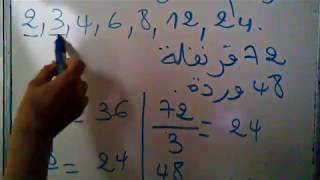 2, 3, 4, 6, 8, 12, 24.
72 قرنفلة
48 وردة.
= 36
72/3 = 24
= 24
48